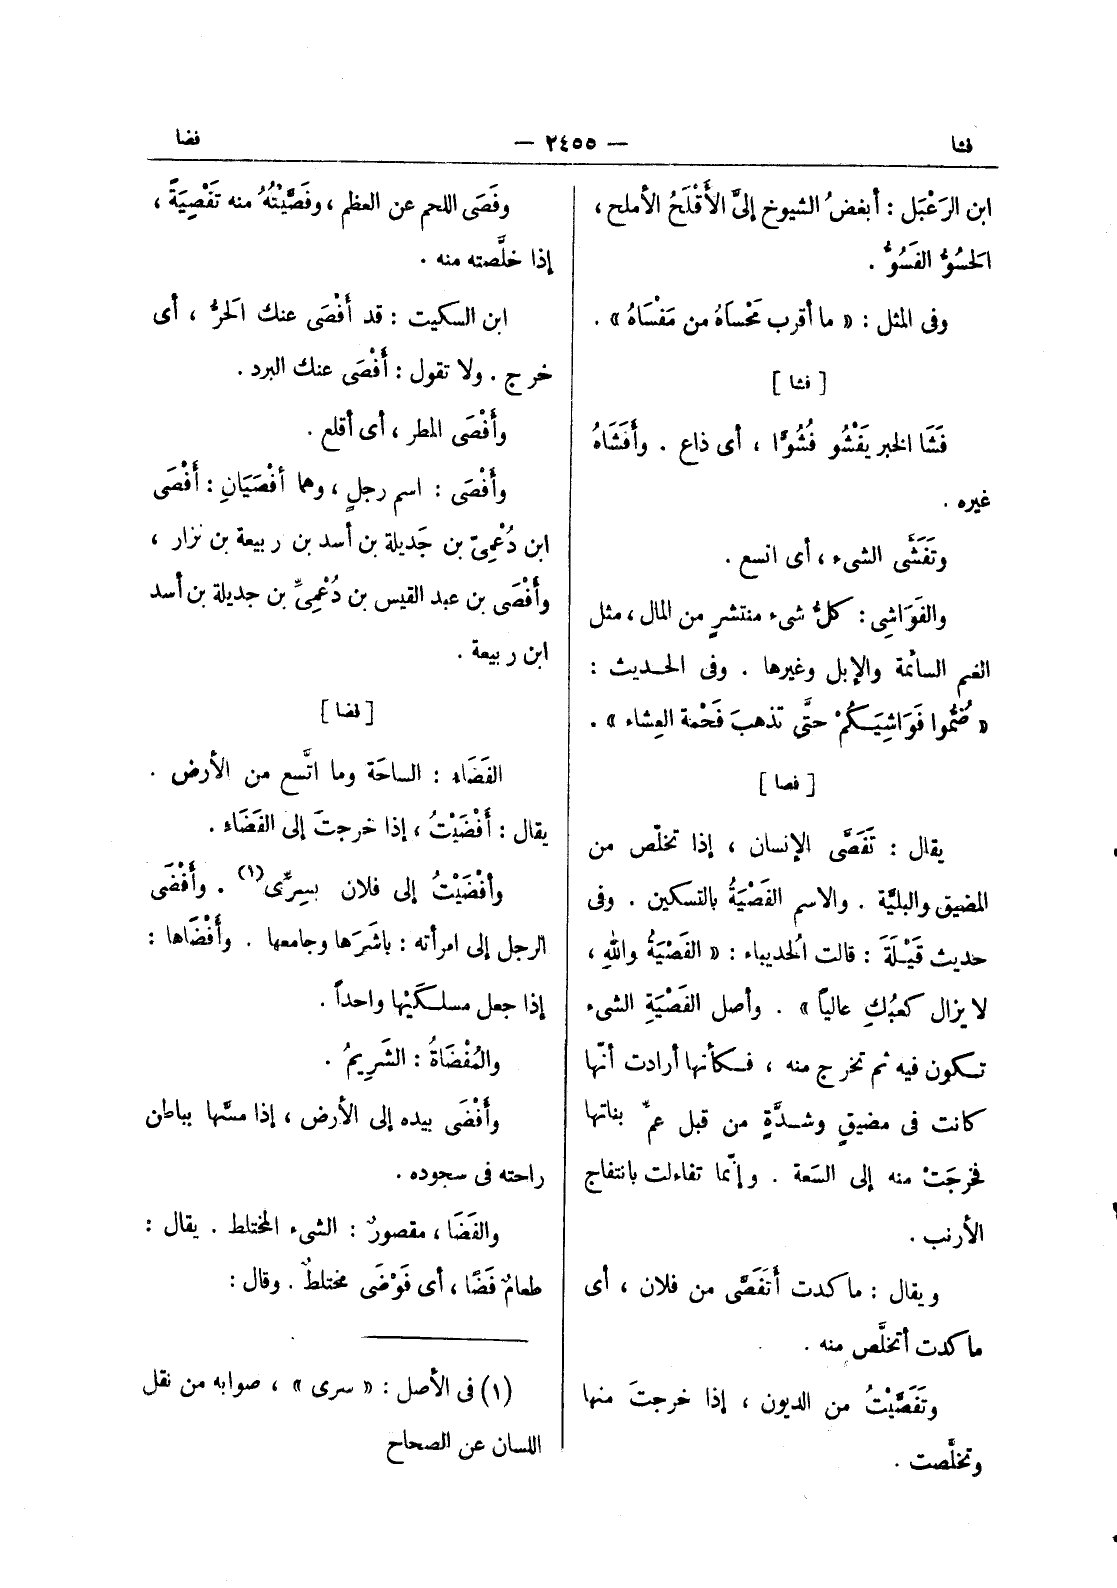 فشا
— ٢٤٥٥ —
فضا
ابن الرَعْبَل : أبغضُ الشيوخ إلىَّ الأَقْلَحُ الأملح ،
الحَسُوُّ الفَسُوُّ .
وفى المثل : « ما أقرب مَحْساهُ من مَفْسَاهُ » .
[ فشا ]
فَشَا الخبر يَفْشُو فُشُوًّا ، أى ذاع . وأَفشَاهُ
غيره .
وتَفَشَّى الشىء ، أى اتسع .
والفَوَاشِى : كلُّ شىء منتشرٍ من المال ، مثل
الغنم السائمة والإبل وغيرها . وفى الحديث :
« ضُمُّوا فَوَاشِيَكُمْ حتَّى تذهبَ فَحْمة العِشاء » .
[ فصا ]
يقال : تَفَصَّى الإنسان ، إذا تخلّص من
المضيق والبليَّة . والاسم الفَصْيَةُ بالتسكين . وفى
حديث قَيْلَةَ : قالت الحُديباء : « الفَصْيَةُ واللهِ ،
لا يزال كعبُكِ عالياً » . وأصل الفَصْيَةِ الشىء
تكون فيه ثم تخرج منه ، فكأنها أرادت أنّها
كانت فى مضيقٍ وشدَّةٍ من قبل عمِّ بناتها
فخرجَتْ منه إلى السَعة . وإنّما تفاءلت بانتفاج
الأرنب .
ويقال : ما كدت أَتَفَصَّى من فلان ، أى
ما كدت أتخلَّص منه .
وتَفَصَّيْتُ من الديون ، إذا خرجتَ منها
وتخلَّصت .
وفَصَى اللحم عن العظم ، وفَصَّيْتُهُ منه تَفْصِيَةً ،
إذا خلَّصته منه .
ابن السكيت : قد أَفْصَى عنك الحَرُّ ، أى
خرج . ولا تقول : أَفْصَى عنك البرد .
وأَفْصَى المطر ، أى أقلع .
وأَفْصَى : اسم رجلٍ ، وهما أفْصَيَانِ : أَفْصَى
ابن دُعْمِىّ بن جَديلة بن أسد بن ربيعة بن نزار ،
وأَفْصَى بن عبد القيس بن دُعْمِىِّ بن جديلة بن أسد
ابن ربيعة .
[ فضا ]
الفَضَاء : الساحَة وما اتَّسع من الأرض .
يقال : أَفْضَيْتُ ، إذا خرجتَ إلى الفَضَاء .
وأفْضَيْتُ إلى فلان بسِرِّى (١) . وأَفْضَى
الرجل إلى امرأته : باشَرَها وجامعها . وأَفْضَاها :
إذا جعل مسلكَيْها واحداً .
والمُفْضَاةُ : الشَرِيمُ .
وأَفْضَى بيده إلى الأرض ، إذا مسَّها بباطن
راحته فى سجوده .
والفَضَا ، مقصورٌ : الشىء المختلط . يقال :
طعامٌ فَضًا ، أى فَوْضَى مختلطٌ . وقال :
(١) فى الأصل : « سرى » ، صوابه من نقل
اللسان عن الصحاح